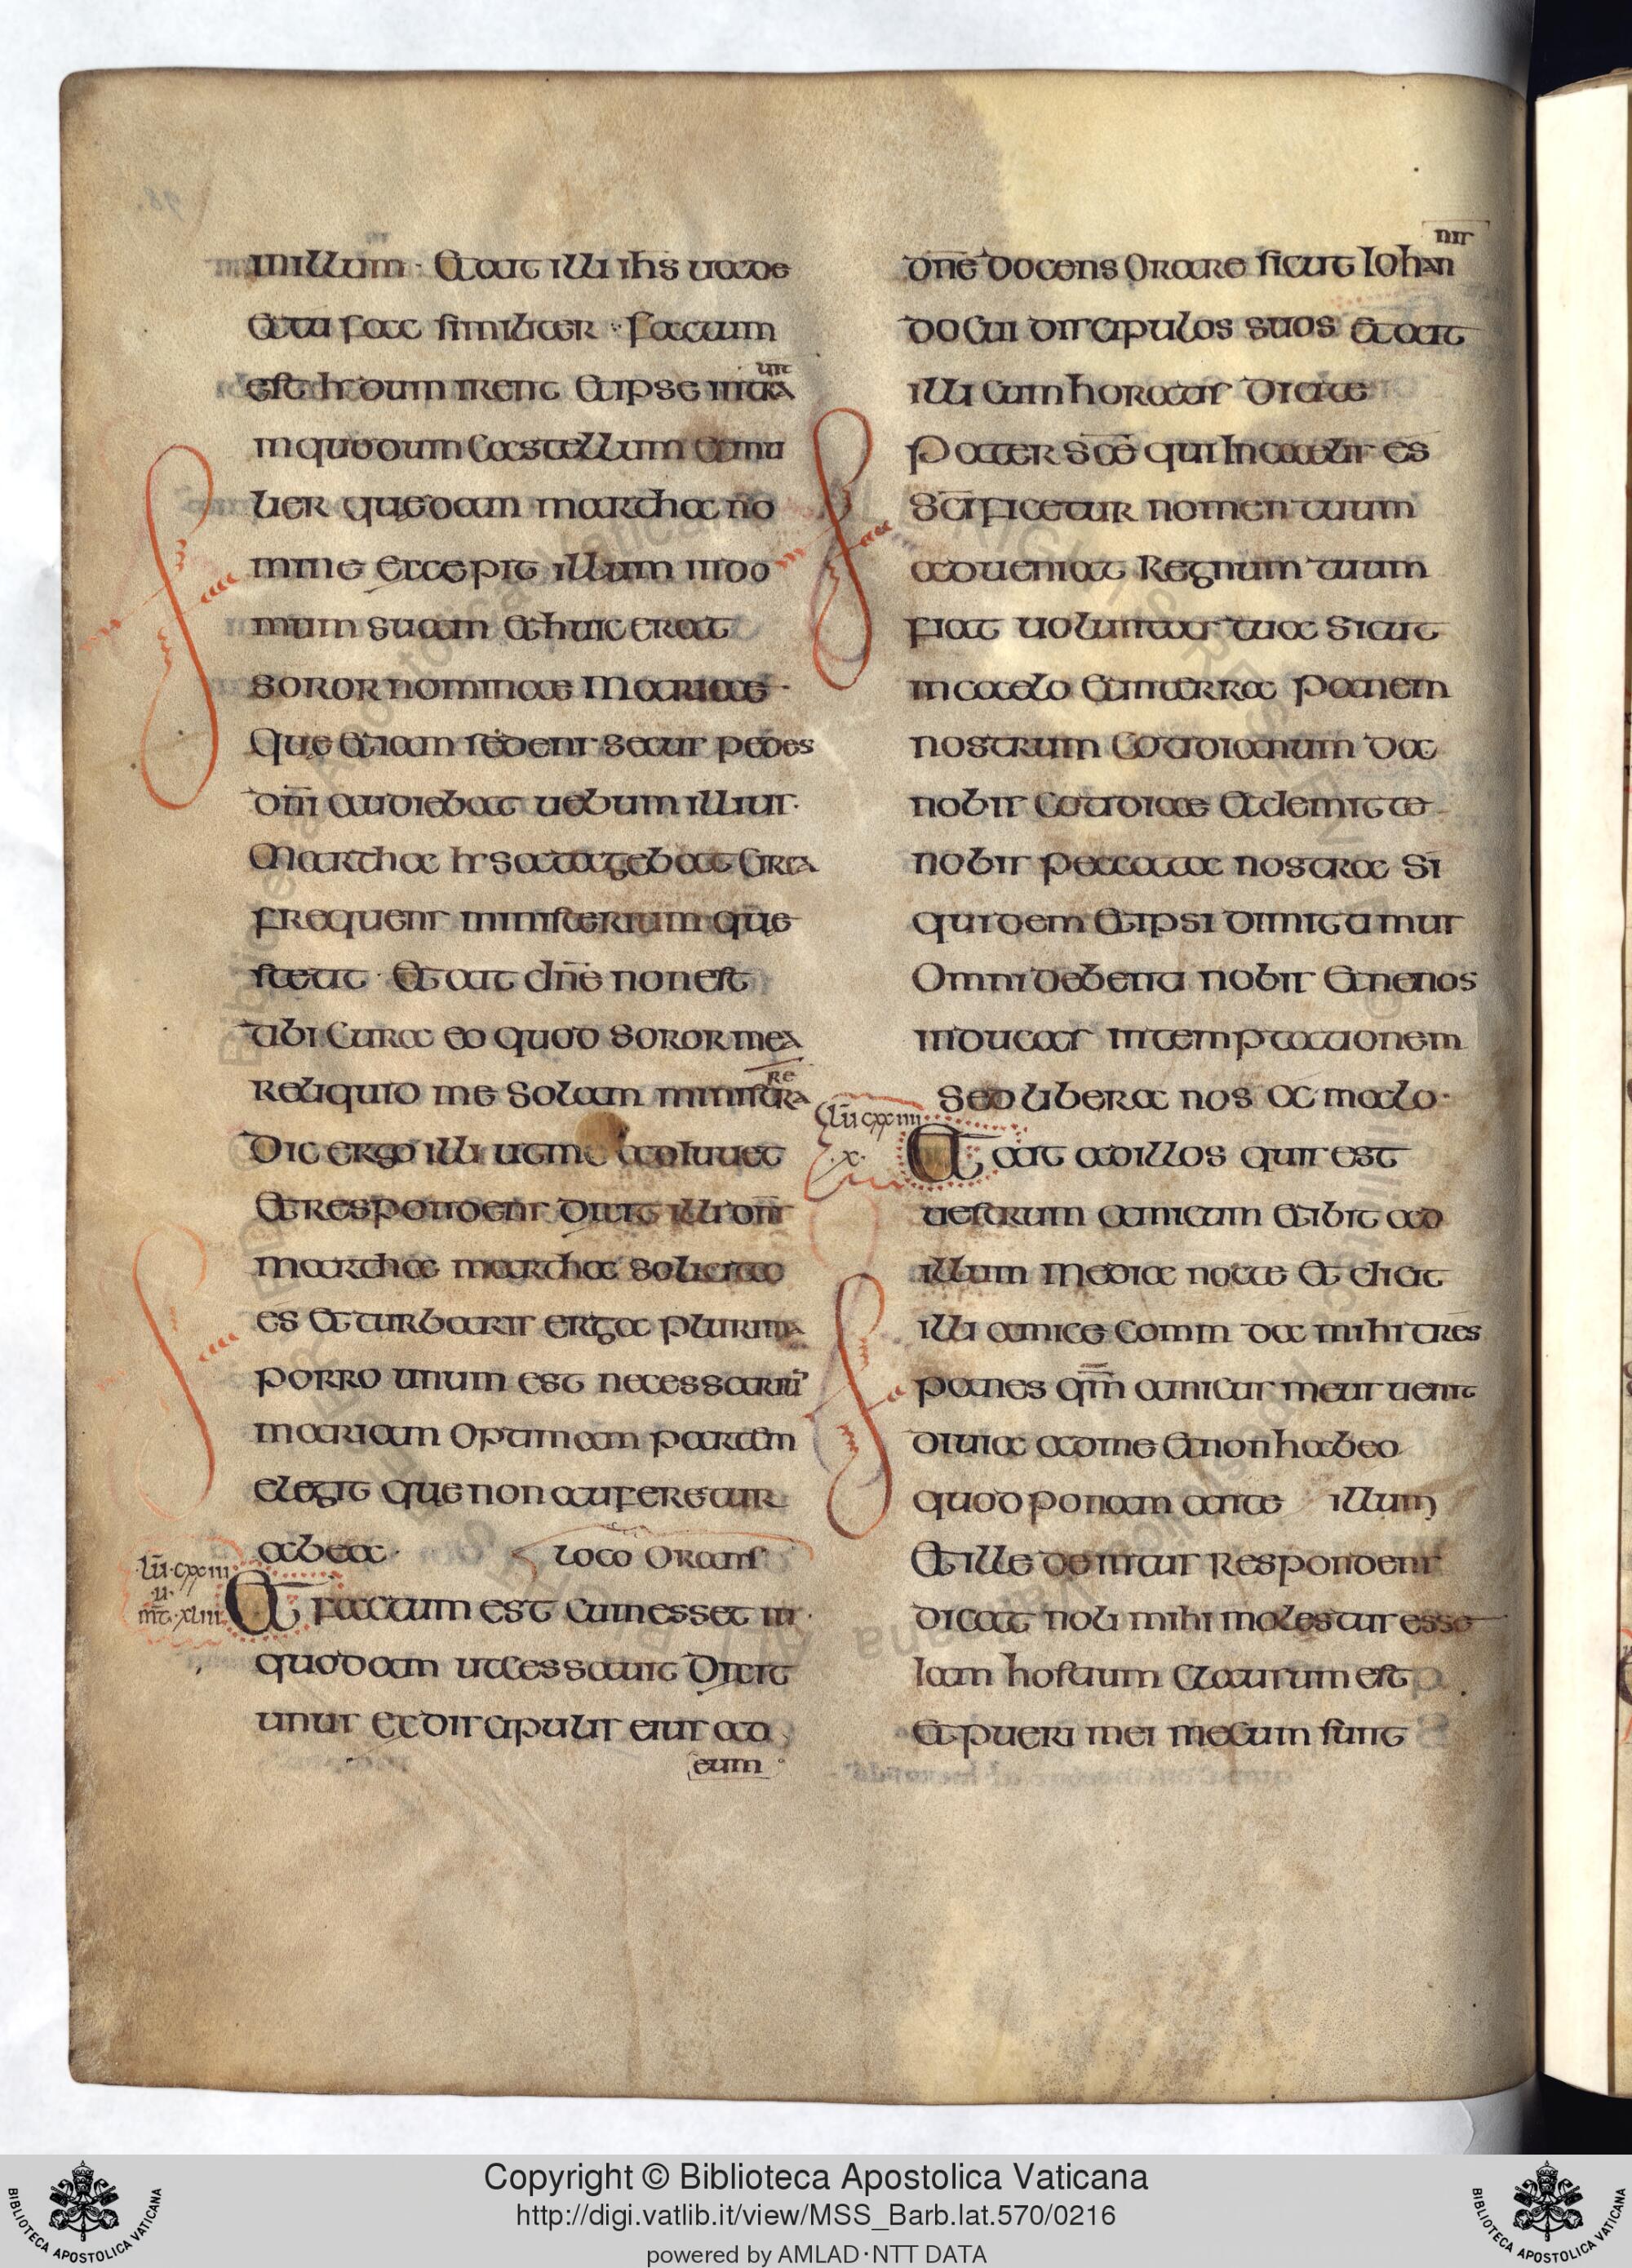 in illum · Et ait illi ih̅s uade
Et tu fac similiter · factum
est h̅ dum irent Et ipse intra
uit
in quoddum Castellum Et mu
lier quędam martha no
mine excepit illum in do
mum suam Et huic erat
soror nominae Mariae ·
Quę Etiam sedens secus pedes
dn̅i audiebat uebum illius ·
Martha h̅ satagebat Circa
frequens ministerium quę
stetit · Et ait dn̅e non est
tibi Cura eo quod soror mea
reliquid me solam ministra
re
Dic ergo illi ut me adiuuet
Et respondens Dixit illi dn̅s
martha martha solicita
es Et turbaris erga plurima
porro unum est necessariu̅
mariam optimam partem
elegit que non auferetur
ab ea ·
loco orans
lū · cxxiii
u
mt̅ · xliii
Et factum est Cum esset in
quodam ut cessauit Dixit
unus ex discipulis eius ad
eum
dn̅e docens orare sicut Iohan
nis
docui discipulos suos Et ait
illi Cum horatis Dicite
Pater sc̅e qui In caelis es
Sc̅ificetur nomen tuum
adueniat Regnum tuum
fiat uoluntas tua sicut
in caelo Et in terra Panem
nostrum Cottidianum Da
nobis Cottidiae Et demitte
nobis peccata nostra si
quidem Et ipsi dimittimus
Omni debenti nobis Et ne nos
inducas in temptationem
Sed libera nos a malo ·
lū cxxiiii
· x ·
Et ait ad illos quis est
uestrum amicum Et ibit ad
illum Media nocte Et dicit
illi amice Comm da mihi tres
panes qm̅ amicus meus uenit
diuia ad me Et non habeo
quod ponam ante illum
Et ille de intus Respondens
dicat noli mihi molestus esse
Iam hostium Clausum est
Et pueri mei mecum sunt
Copyright © Biblioteca Apostolica Vaticana
http://digi.vatlib.it/view/MSS_Barb.lat.570/0216
powered by AMLAD · NTT DATA
BIBLIOTECA APOSTOLICA VATICANA
BIBLIOTECA APOSTOLICA VATICANA